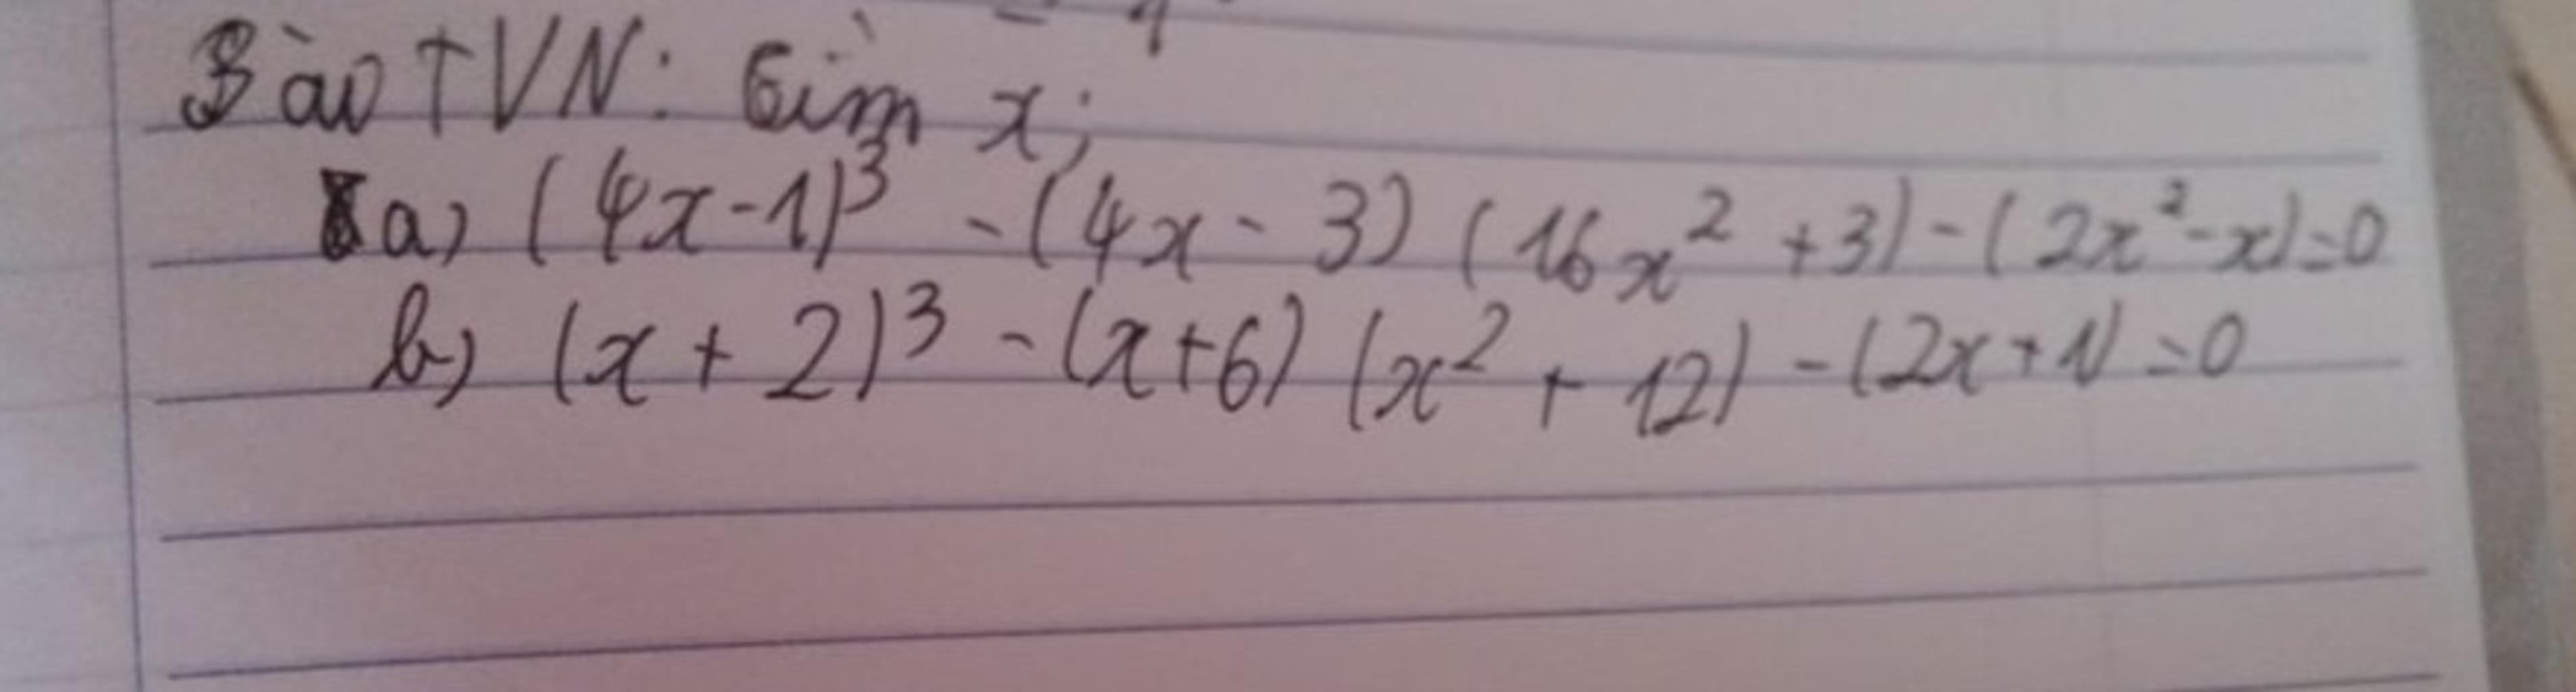 Bài TVN: Tìm x;
a) (4x-1)³ - (4x - 3) (16x² + 3) - (2x² - x) = 0
b) (x + 2)³ - (x+6) (x² + 12) - (2x + 1) = 0